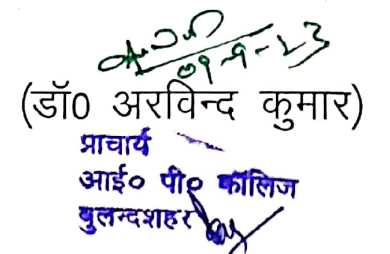 09-9-23
(डॉ0 अरविन्द कुमार)
प्राचार्य
आई० पी० कॉलिज
बुलन्दशहर